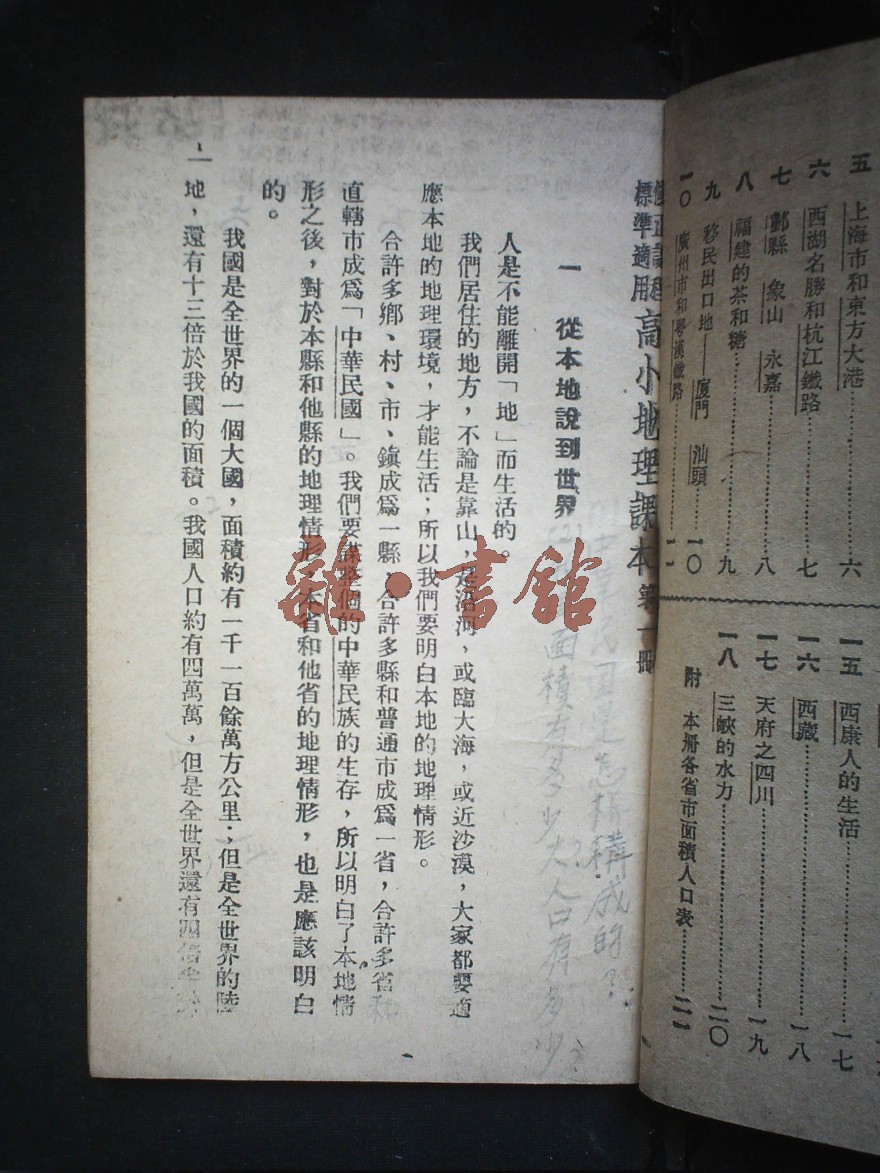 五 上海市和東方大港……六
六 西湖名勝和杭江鐵路……七
七 鄞縣 象山 永嘉……八
八 福建的茶和糖……九
九 移民出口地——廈門 汕頭……一〇
一〇 廣州市和粵漢鐵路……一一
一五 西康人的生活……一七
一六 西藏……一八
一七 天府之四川……一九
一八 三峽的水力……二〇
附 本册各省市面積人口表……二一
修正課程
標準適用
高小地理課本 第一册
民國是怎樣構成的？
面積有多少大人口有多少？
一 從本地說到世界
人是不能離開「地」而生活的。
我們居住的地方，不論是靠山，是沿河，或臨大海，或近沙漠，大家都要適
應本地的地理環境，才能生活；所以我們要明白本地的地理情形。
合許多鄉、村、市、鎮成爲一縣，合許多縣和普通市成爲一省，合許多省和
直轄市成爲「中華民國」。我們要謀整個的中華民族的生存，所以明白了本地情
形之後，對於本縣和他縣的地理情形，本省和他省的地理情形，也是應該明白
的。
我國是全世界的一個大國，面積約有一千一百餘萬方公里；但是全世界的陸
地，還有十三倍於我國的面積。我國人口約有四萬萬，但是全世界還有四倍
一
雜·書館